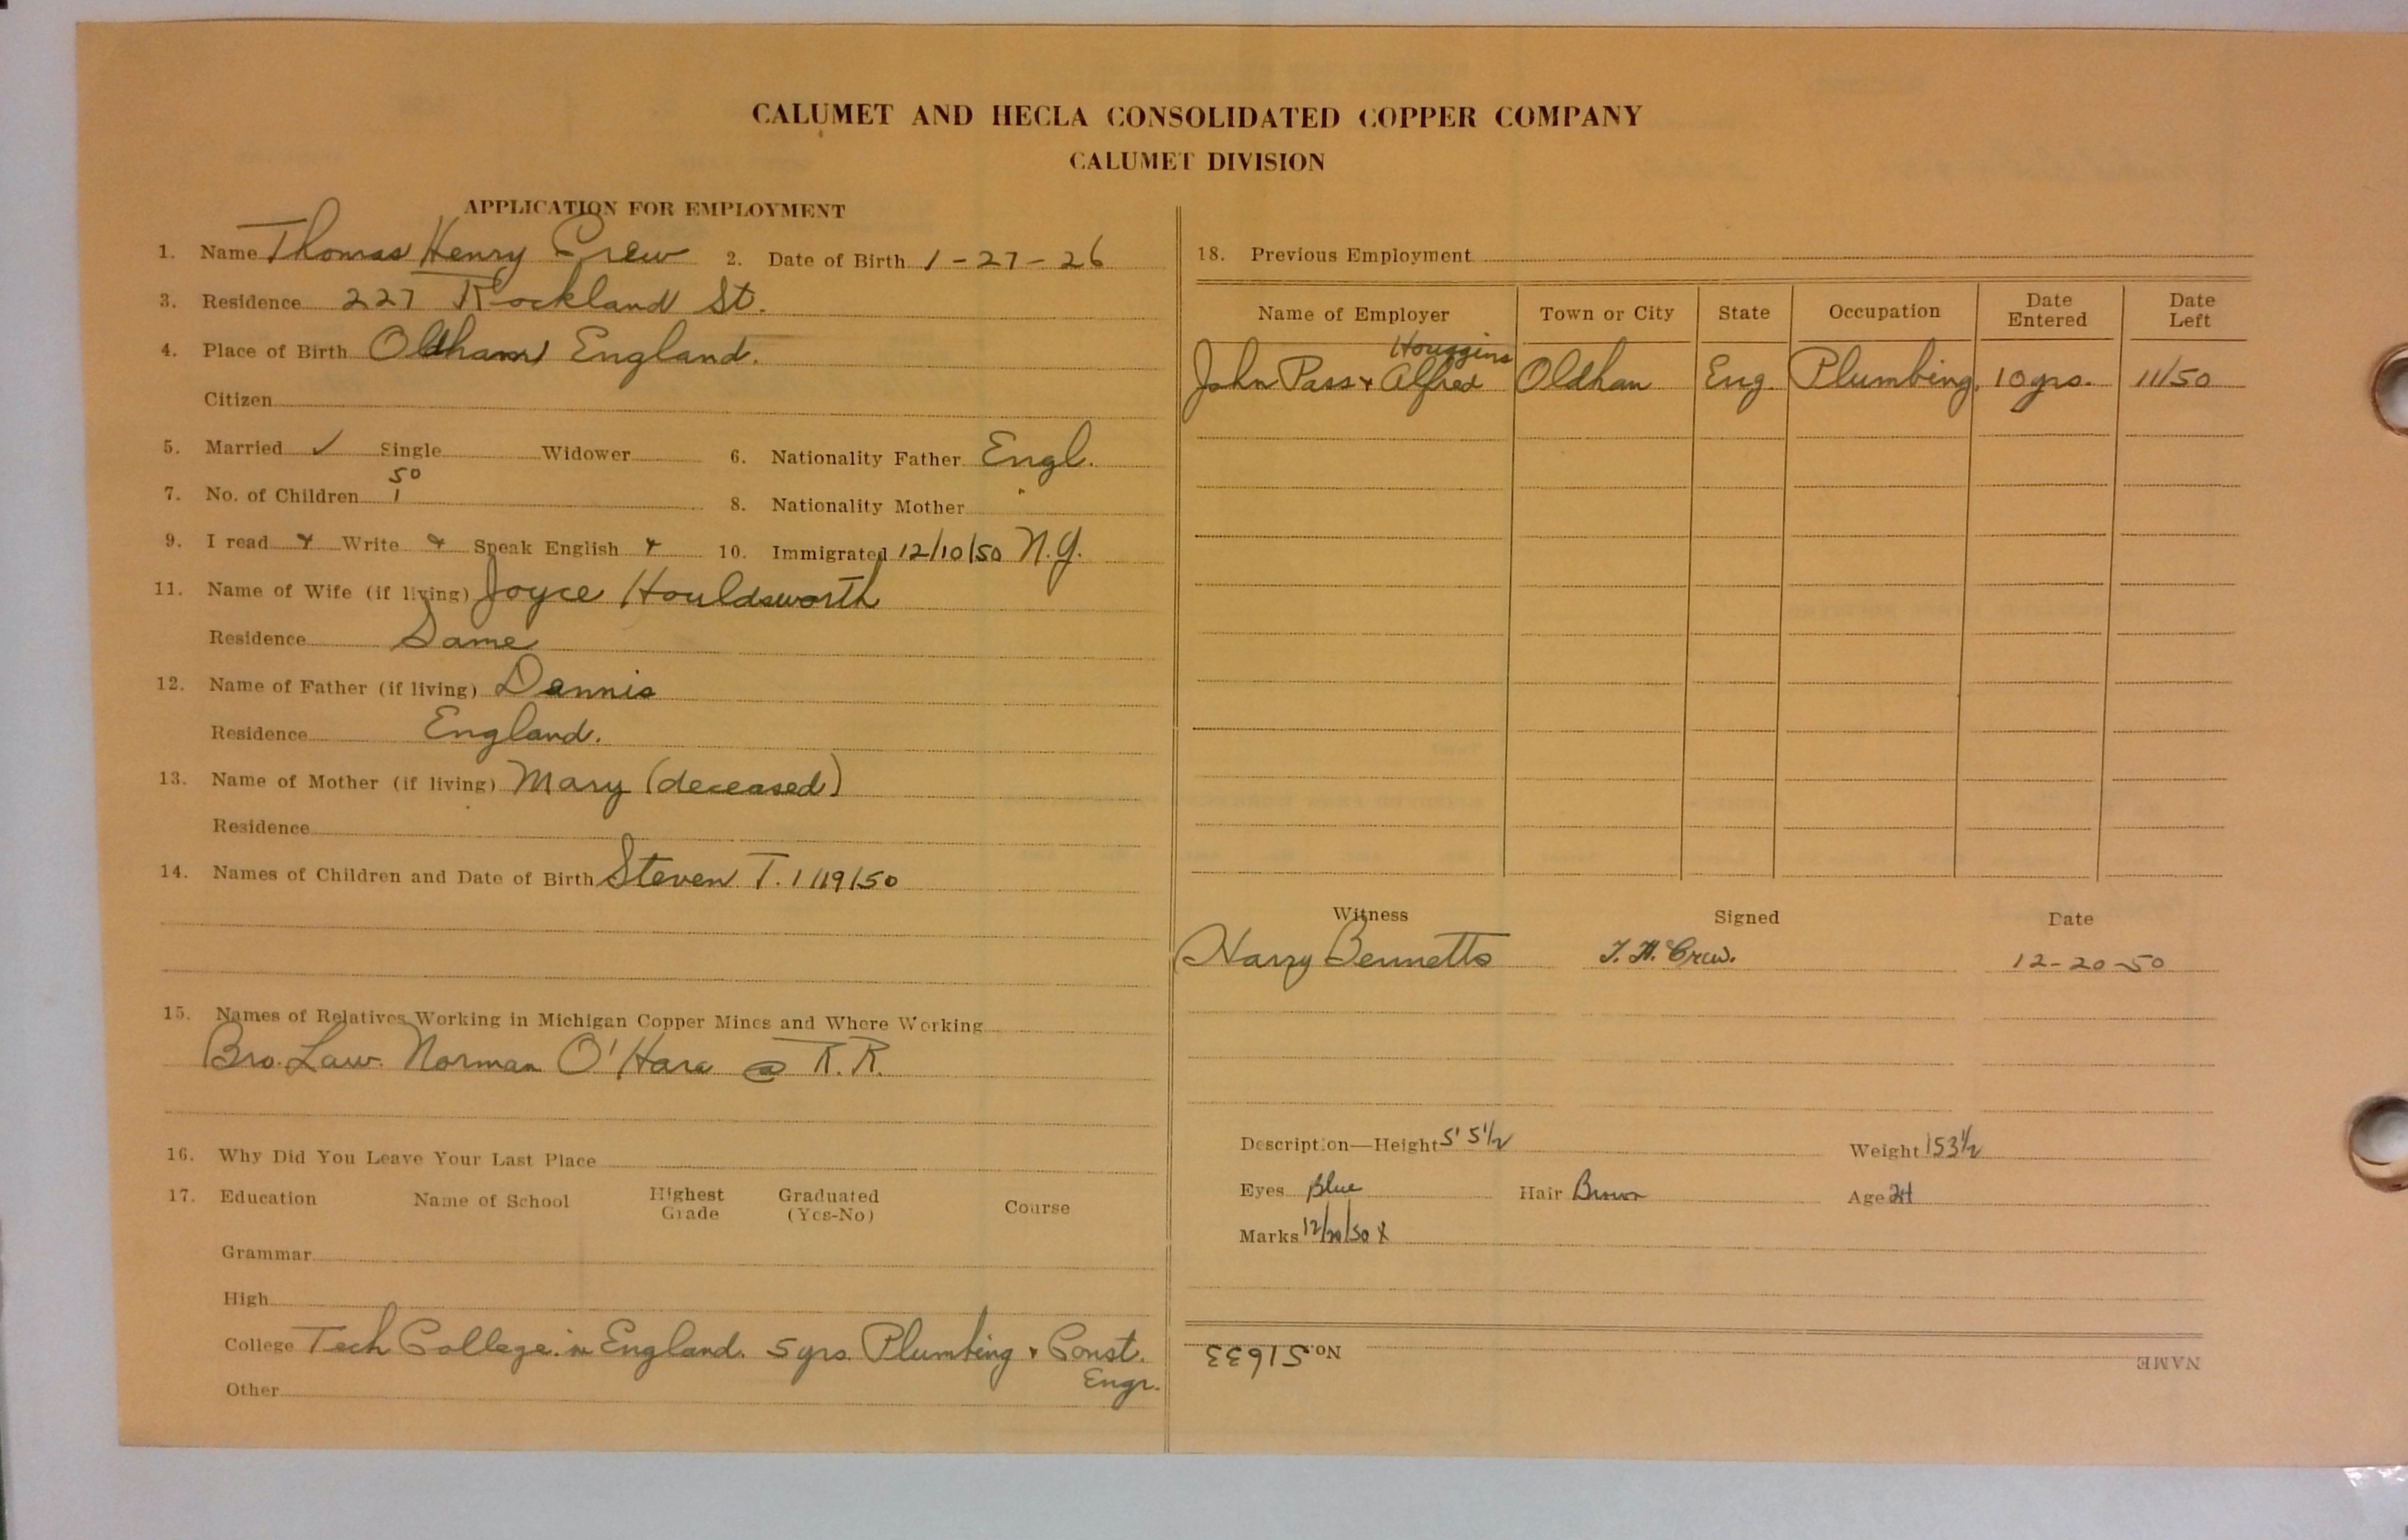 CALUMET AND HECLA CONSOLIDATED COPPER COMPANY
CALUMET DIVISION
APPLICATION FOR EMPLOYMENT
1. Name Thomas Henry Crew 2. Date of Birth 1-27-26
3. Residence 227 Rockland St.
4. Place of Birth Oldham England.
Citizen
5. Married ✓ Single Widower 6. Nationality Father Engl.
50
7. No. of Children 1 8. Nationality Mother "
9. I read Write Speak English 10. Immigrated 12/10/50 N.Y.
11. Name of Wife (if living) Joyce Houldsworth
Residence Same
12. Name of Father (if living) Dennis
Residence England.
13. Name of Mother (if living) Mary (deceased)
Residence
14. Names of Children and Date of Birth Steven T. 1/19/50
15. Names of Relatives Working in Michigan Copper Mines and Where Working
Bro. Law. Norman O'Hara @ R.R.
16. Why Did You Leave Your Last Place
17. Education Name of School Highest Grade Graduated (Yes-No) Course
Grammar
High
College Tech College in England. 5 yrs. Plumbing & Const.
Engr.
Other
18. Previous Employment
Name of Employer Town or City State Occupation Date Entered Date Left
Houggins
John Pass & Alfred Oldham Eng. Plumbing. 10 yrs. 11/50
Witness Signed Date
Harry Bennetts T. H. Crew. 12-20-50
Description—Height 5' 5 1/2 Weight 153 1/2
Eyes Blue Hair Brown Age 24
Marks 12/20/50 X
No. 51633 NAME